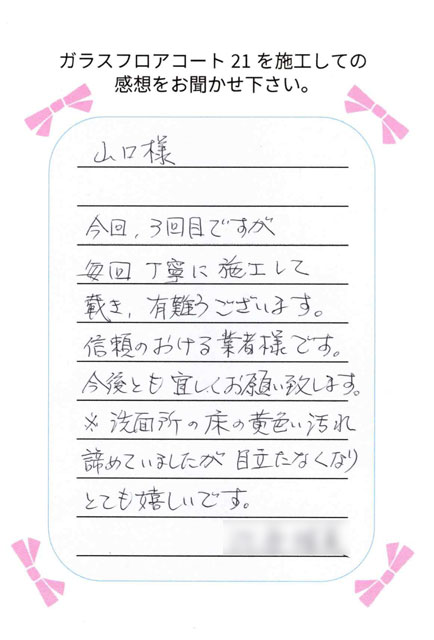 ガラスフロアコート21を施工しての
感想をお聞かせ下さい。
山口様
今回、3回目ですが
毎回 丁寧に 施工して
戴き、有難うございます。
信頼のおける業者様です。
今後とも 宜しくお願い致します。
※ 洗面所の床の黄色い汚れ
諦めていましたが 目立たなくなり
とても嬉しいです。